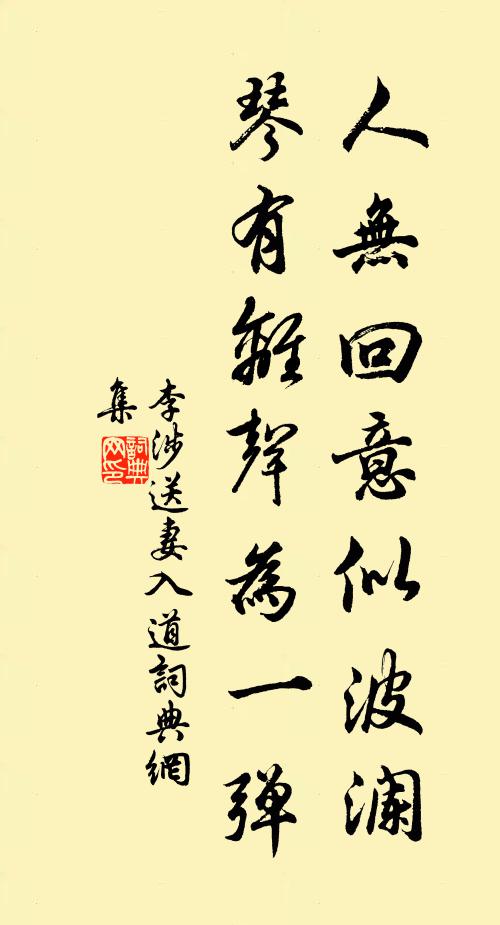 人無回意似波瀾
琴有離聲為一弹
李涉送妻入道詞典網
集
詞典
网印